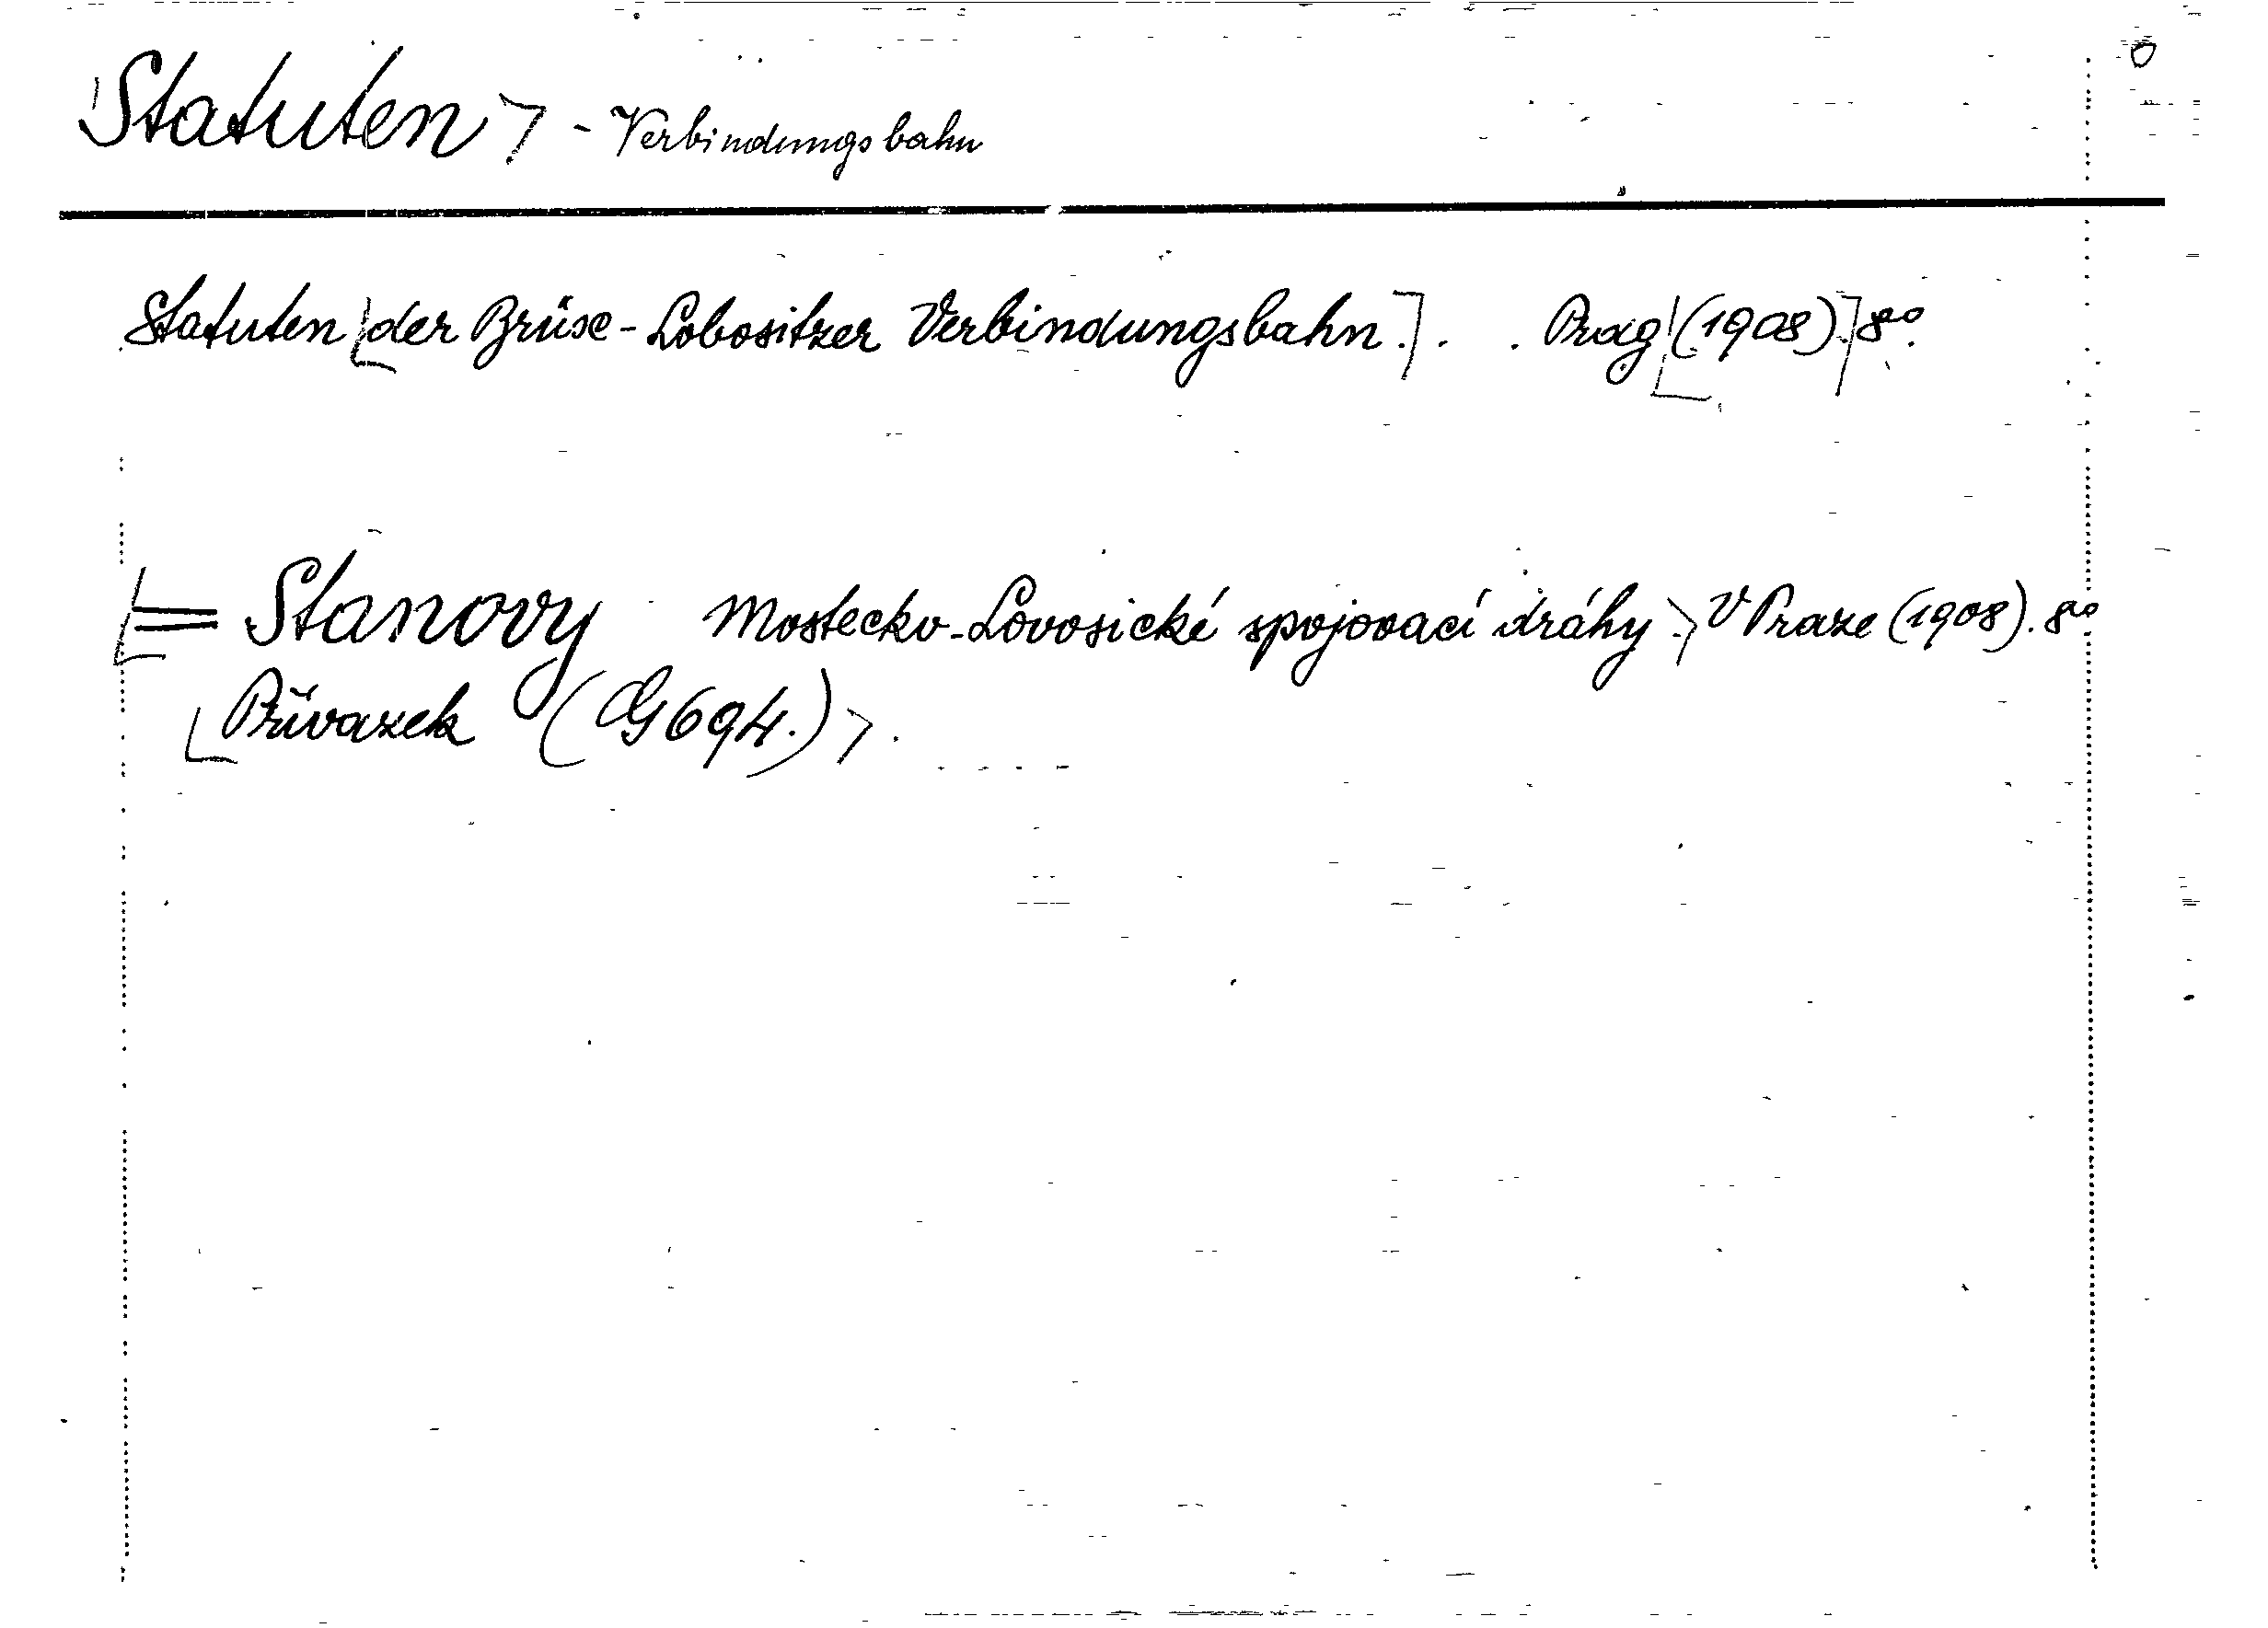 Statuten - Verbindungsbahn
Statuten [der Brüxe-Lobositzer Verbindungsbahn]. . Prag [(1908).] 8°.
[= Stanovy Mostecko-Lovosické spojovací dráhy.] V Praze (1908). 8°
[Přívazek (G 694.)].